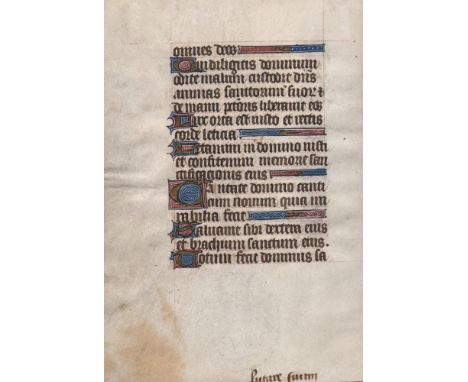 omnes deos
Qui diligitis dominum
odite malum custodit dns
animas sanctorum suorz
de manu pctoris liberauit eos
Lux orta est iusto et rectis
corde leticia
Letamini in domino iusti
et confitemini memorie san
ctificationis eius
Cantate domino canti
cum nouum quia mi
rabilia fecit
Saluauit sibi dextera eius
et brachium sanctum eius.
Notum fecit dominus sa
lutare suum